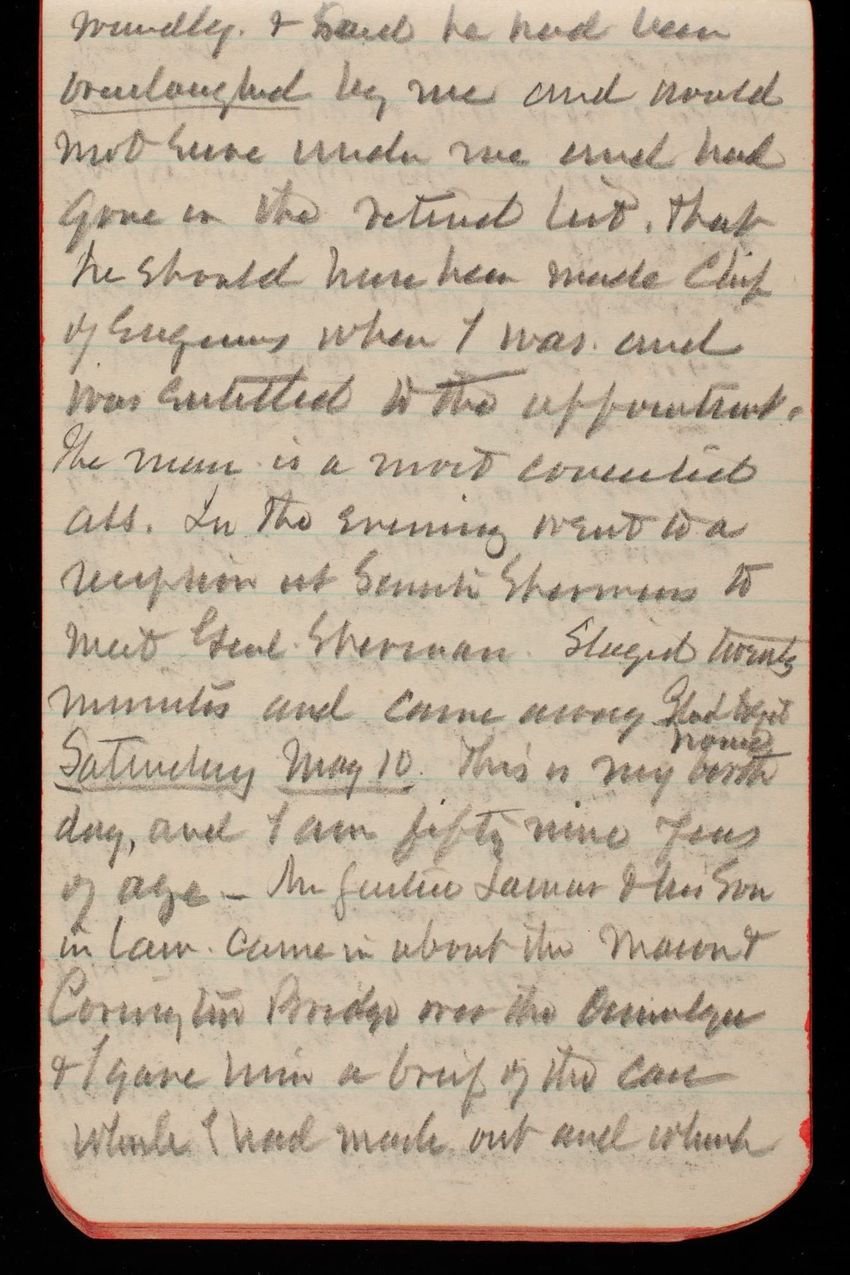 & said he had been
overlaughed by me and would
not serve under me and had
gone on the retired list. That
he should have been made Chief
of Engineers when I was and
was entitled to the appointment.
The man is a most conceited
ass. In the evening went to a
reception at Senator Shermans to
meet Genl Sherman. Stayed twenty
minutes and came away Glad to get
home
Saturday May 10. This is my birth
day, and I am fifty nine years
of age - Mr Justice Lamar & his Son
in law. came in about the Macon &
Covington Bridge over the Ocmulgee
& I gave him a brief of the case
which I had made out and which